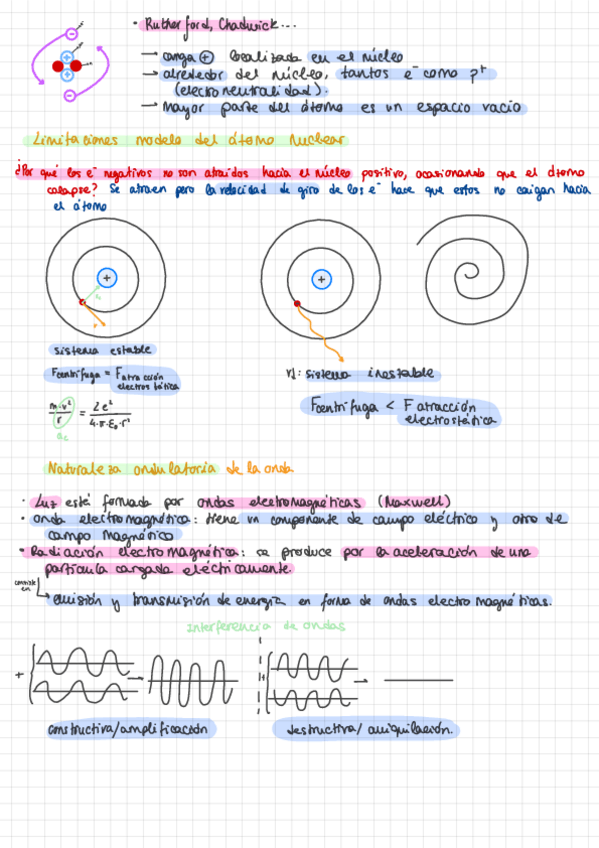 · Rutherford, Chadwick...
→ carga ⊕ localizada en el núcleo
→ alrededor del núcleo, tantos e⁻ como p⁺
(electroneutralidad).
→ Mayor parte del átomo es un espacio vacío
Limitaciones modelo del átomo Nuclear
¿Por qué los e⁻ negativos no son atraídos hacia el núcleo positivo, ocasionando que el átomo
colapse? Se atraen pero la velocidad de giro de los e⁻ hace que estos no caigan hacia
el átomo
+
+
sistema estable
Fcentrífuga = Fatracción
electrostática
m·v²/r = Ze²/4·π·ε₀·r²
ac
v↓: sistema inestable
Fcentrífuga < F atracción
electrostática
Naturaleza ondulatoria de la onda
· Luz está formada por ondas electromagnéticas (Maxwell)
· onda electromagnética: tiene un componente de campo eléctrico y otro de
campo magnético
· Radiación electromagnética: se produce por la aceleración de una
partícula cargada eléctricamente.
consiste
en
emisión y transmisión de energía en forma de ondas electromagnéticas.
Interferencia de ondas
+
+
constructiva/amplificación
destructiva/aniquilación.